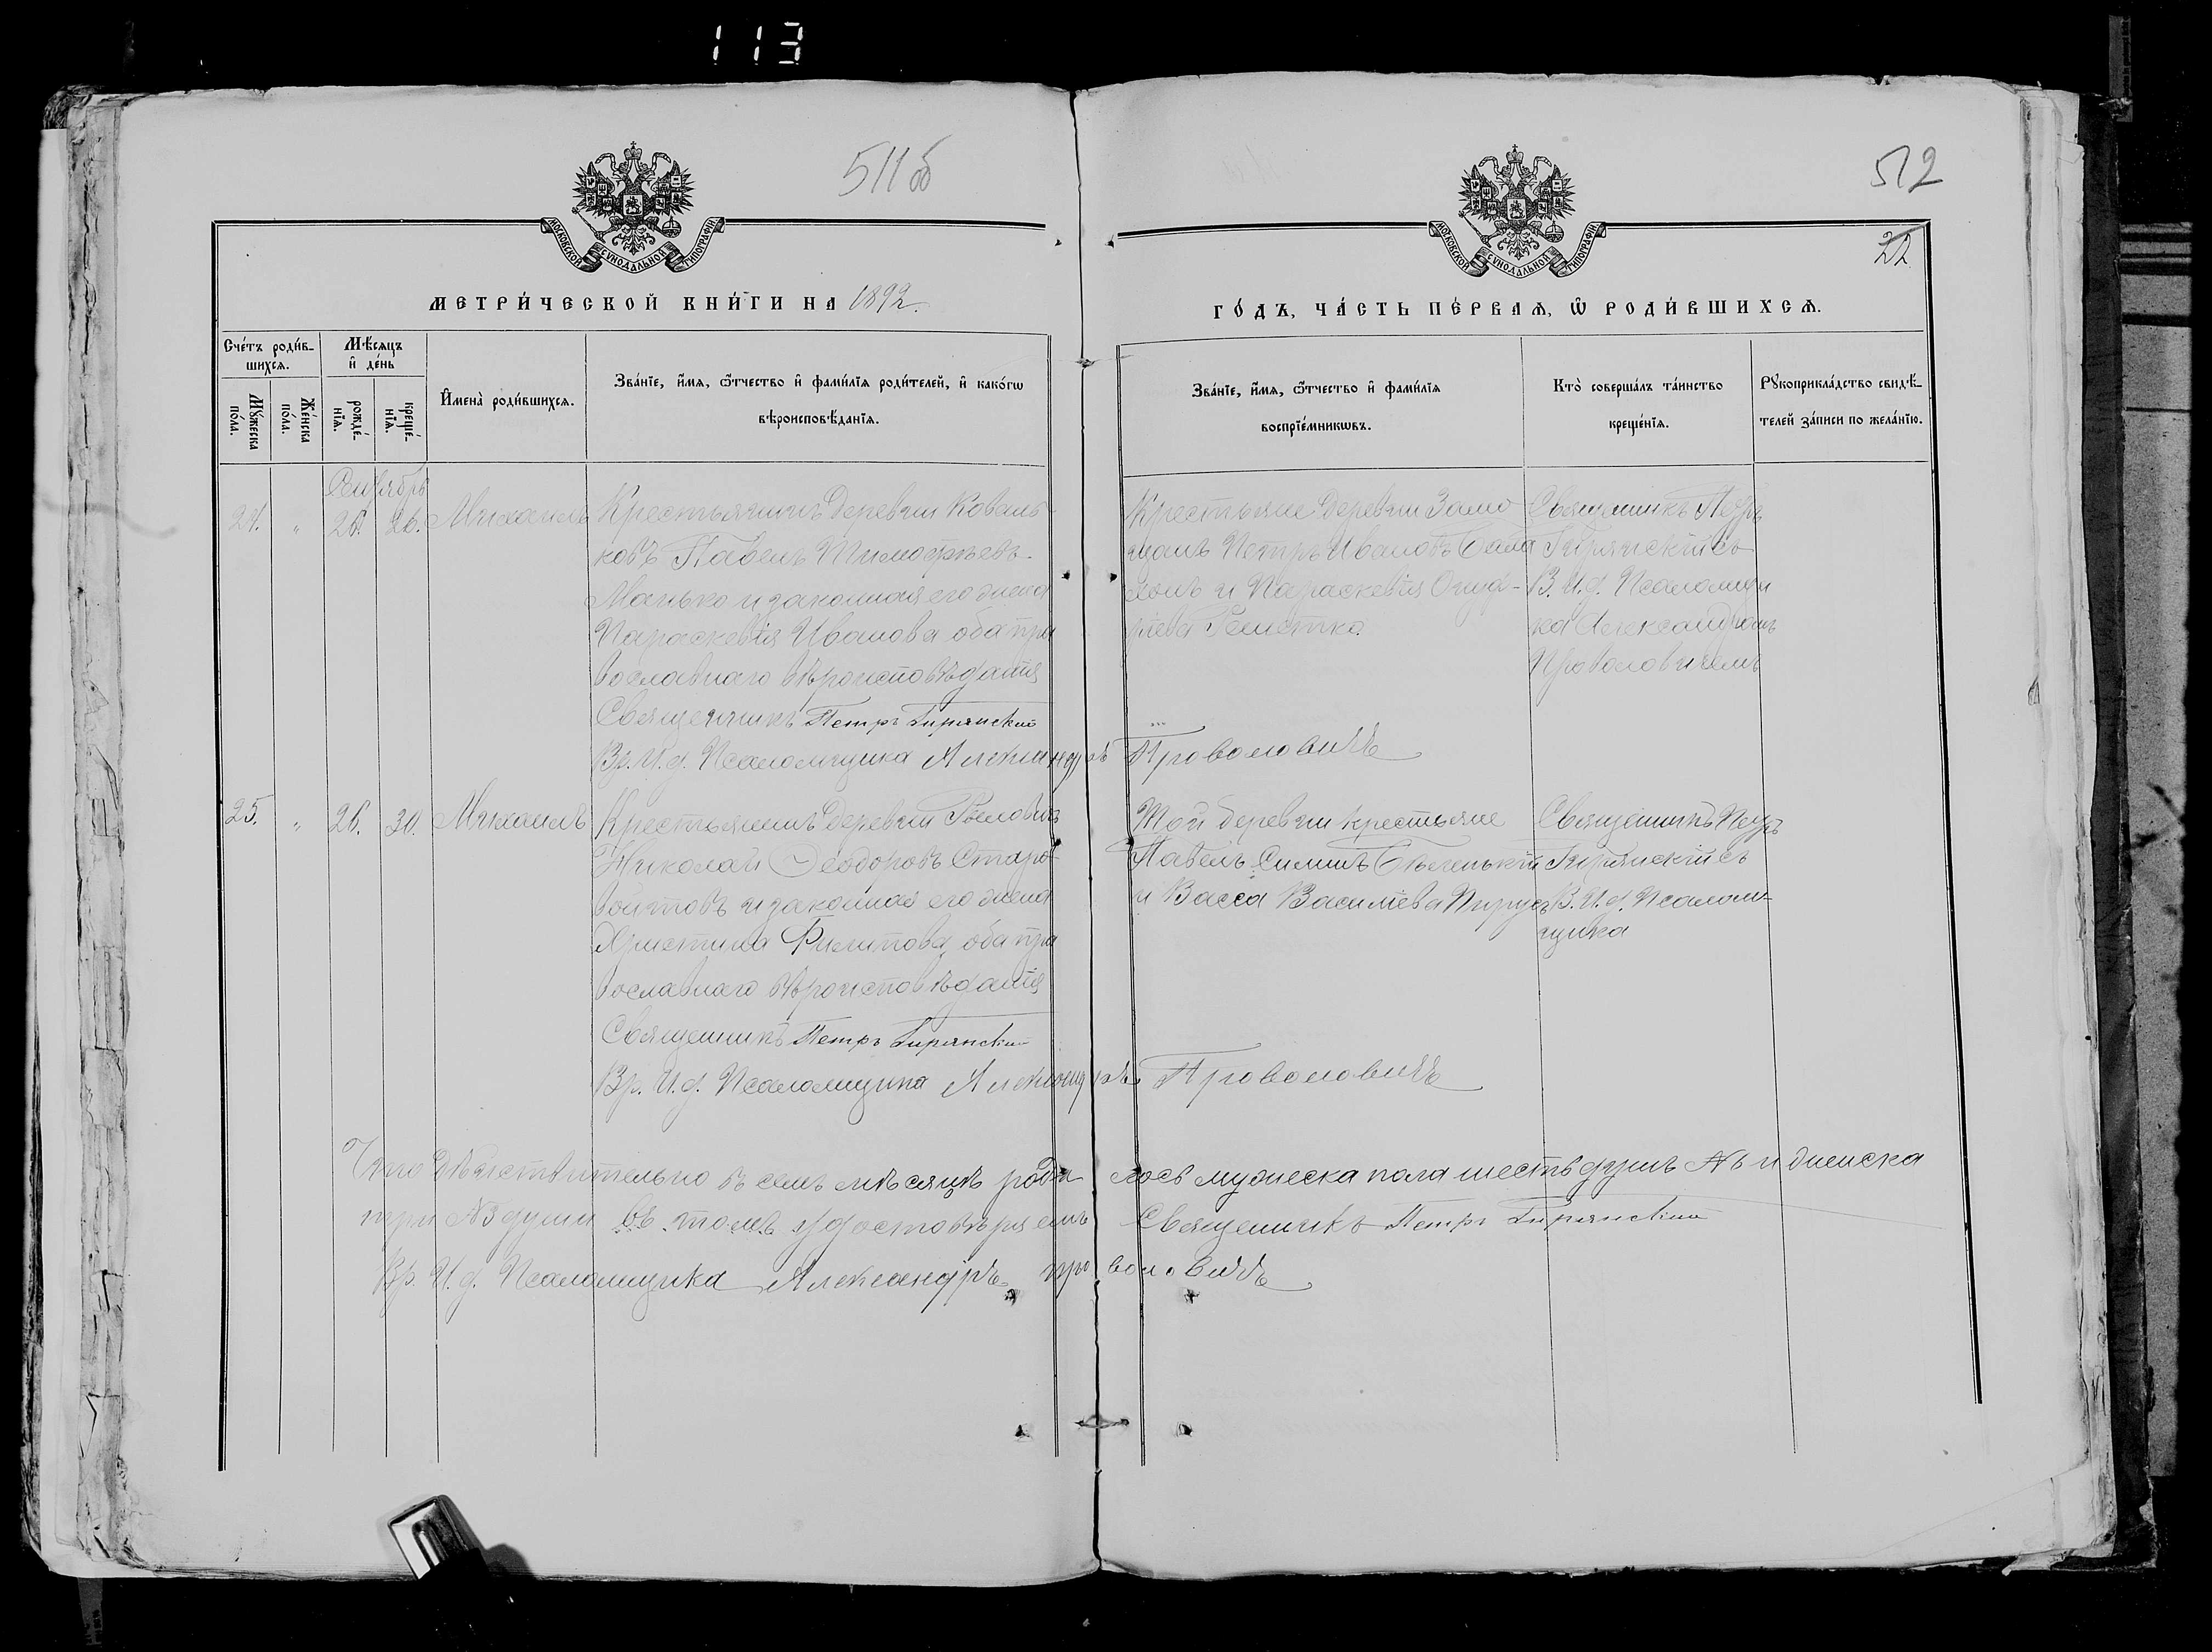 113
511об
512
22
МОСКОВСКОЙ СУНОДАЛЬНОЙ ТИПОГРАФІИ
МОСКОВСКОЙ СУНОДАЛЬНОЙ ТИПОГРАФІИ
МЕТРИ́ЧЕСКОЙ КНИ́ГИ НА 1892.
ГО́ДЪ, ЧА́СТЬ ПЕ́РВАЯ, Ѡ РОДИ́ВШИХСѦ.
Сче́тъ роди́в-
шихсѧ.
Мꙋ́жеска по́ла.
Же́нска по́ла.
Мѣ́сѧцъ и҆ де́нь
рожде́-
нїѧ.
креще́-
нїѧ.
И҆мена̀ роди́вшихсѧ.
Зва́нїе, и҆́мѧ, ѻ҆́тчество и҆ фами́лїѧ роди́телей, и҆ како́гѡ
вѣроисповѣ́данїѧ.
Зва́нїе, и҆́мѧ, ѻ҆́тчество и҆ фами́лїѧ
воспрїе́мникѡвъ.
Кто̀ соверша́лъ та́инство
креще́нїѧ.
Рꙋкоприкла́дство свидѣ́-
телей за́писи по жела́нїю.
Сентябрь
24. „ 26. 26. Михаилъ
Крестьянинъ деревни Коваль-
ковъ Павелъ Тимофѣевъ
Манько и законная его жена
Параскевія Иванова оба пра
вославнаго вѣроисповѣданія
Священникъ Петръ Гирянскій
Вр. И. д. Псаломщика Александръ Проволовичъ
Крестьяне деревни
Петръ Ивановъ
и Параскевія
Священникъ Петръ
Гирянскій съ
В. И. д. Псаломщи
ка Александромъ
Проволовичемъ
25. „ 26. 30. Михаилъ
Крестьянинъ деревни
Николай Ѳеодоровъ Старо-
войтовъ и законная его жена
Христина Филипова оба пра
вославнаго вѣроисповѣданія
Священникъ Петръ Гирянскій
Вр. И. д. Псаломщика Александръ Проволовичъ
Той деревни крестьяне
Павелъ
и Васса Васильева
Священникъ Петръ
Гирянскій съ
В. И. д. Псалом-
щика
Что дѣйствительно въ семъ мѣсяцѣ роди лось мужеска пола шесть душъ и женска
три №3 души въ томъ удостовѣряемъ Священникъ Петръ Гирянскій
Вр. И. д. Псаломщика Александръ Проволовичъ